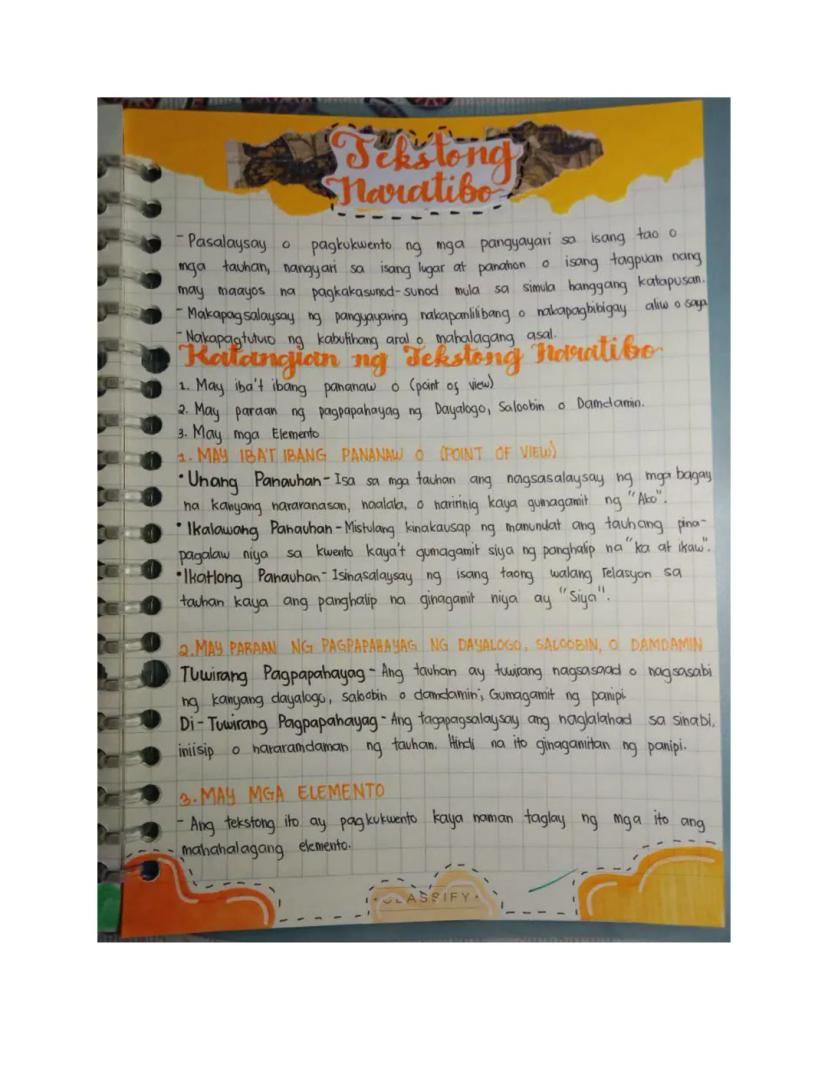 Tekstong
Naratibo
- Pasalaysay o pagkukwento ng mga pangyayari sa isang tao o
mga tauhan, nangyari sa isang lugar at panahon o isang tagpuan nang
may maayos na pagkakasunod-sunod mula sa simula hanggang katapusan.
- Makapagsalaysay ng pangyayaring nakapanlilibang o nakapagbibigay aliw o saya
- Nakapagtuturo ng kabutihang aral o mahalagang asal.
Katangian ng Tekstong Naratibo
1. May iba't ibang pananaw o (point of view)
2. May paraan ng pagpapahayag ng Dayalogo, Saloobin o Damdamin.
3. May mga Elemento
1. MAY IBA'T IBANG PANANAW O (POINT OF VIEW)
• Unang Panauhan - Isa sa mga tauhan ang nagsasalaysay ng mga bagay
na kanyang nararanasan, naalala, o naririnig kaya gumagamit ng "Ako".
• Ikalawang Panauhan - Mistulang kinakausap ng manunulat ang tauhang pina-
pagalaw niya sa kwento kaya't gumagamit siya ng panghalip na "ka at ikaw".
• Ikatlong Panauhan - Isinasalaysay ng isang taong walang relasyon sa
tauhan kaya ang panghalip na ginagamit niya ay "Siya".
2. MAY PARAAN NG PAGPAPAHAYAG NG DAYALOGO, SALOOBIN, O DAMDAMIN
Tuwirang Pagpapahayag - Ang tauhan ay tuwirang nagsasaad o nagsasabi
ng kanyang dayalogo, saloobin o damdamin; Gumagamit ng panipi
Di - Tuwirang Pagpapahayag - Ang tagapagsalaysay ang naglalahad sa sinabi,
iniisip o nararamdaman ng tauhan. Hindi na ito ginagamitan ng panipi.
3. MAY MGA ELEMENTO
- Ang tekstong ito ay pagkukwento kaya naman taglay ng mga ito ang
mahahalagang elemento.
• CLASSIFY •